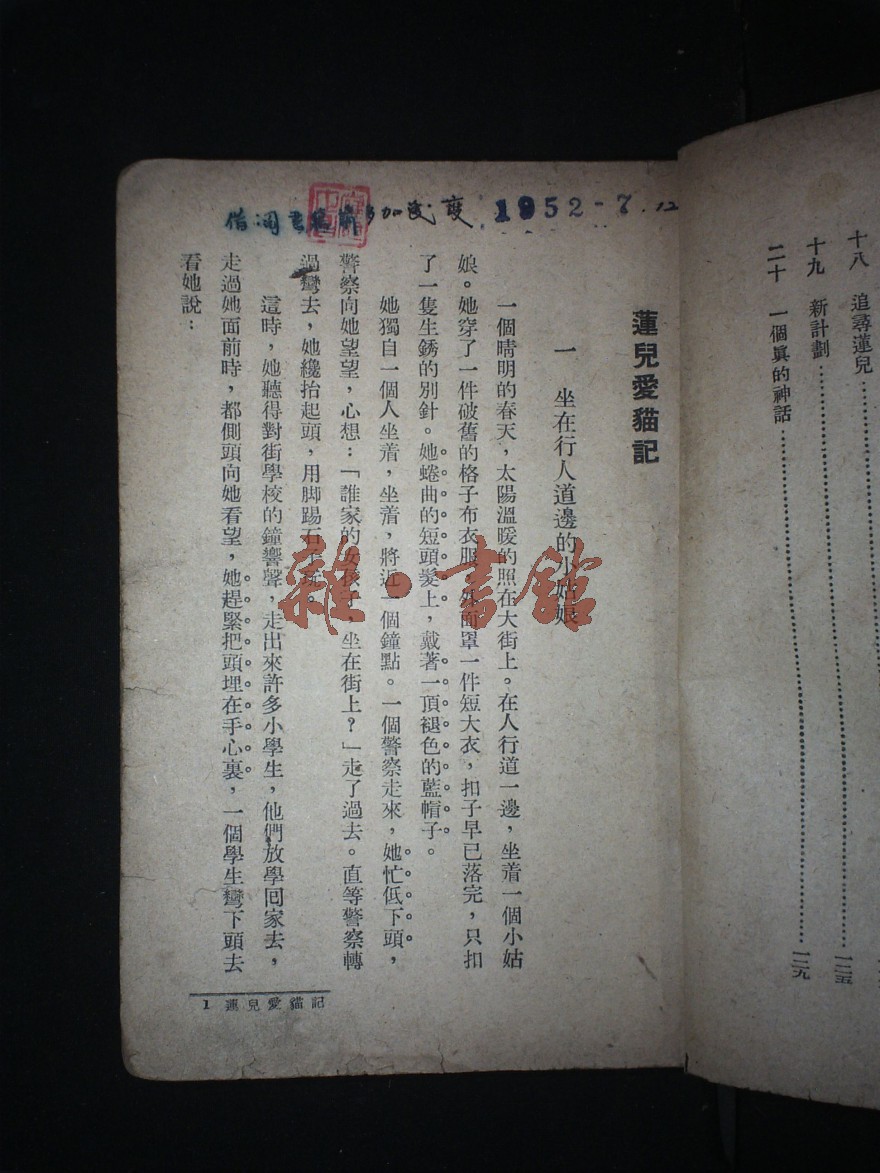 十八 追尋蓮兒
一二五
十九 新計劃
一二九
二十 一個眞的神話
1952-7.12
蓮兒愛貓記
一 坐在行人道邊的小姑娘
一個晴明的春天，太陽溫暖的照在大街上。在人行道一邊，坐着一個小姑
娘。她穿了一件破舊的格子布衣服，外面罩一件短大衣，扣子早已落完，只扣
了一隻生銹的別針。她蜷曲的短頭髮上，戴著一頂褪色的藍帽子。
她獨自一個人坐着，坐着，將近一個鐘點。一個警察走來，她忙低下頭，
警察向她望望，心想：「誰家的女孩子，坐在街上？」走了過去。直等警察轉
過彎去，她纔抬起頭，用脚踢石子玩。
這時，她聽得對街學校的鐘響聲，走出來許多小學生，他們放學回家去，
走過她面前時，都側頭向她看望，她趕緊把頭埋在手心裏，一個學生彎下頭去
看她說：
1 蓮兒愛貓記
雜·書館